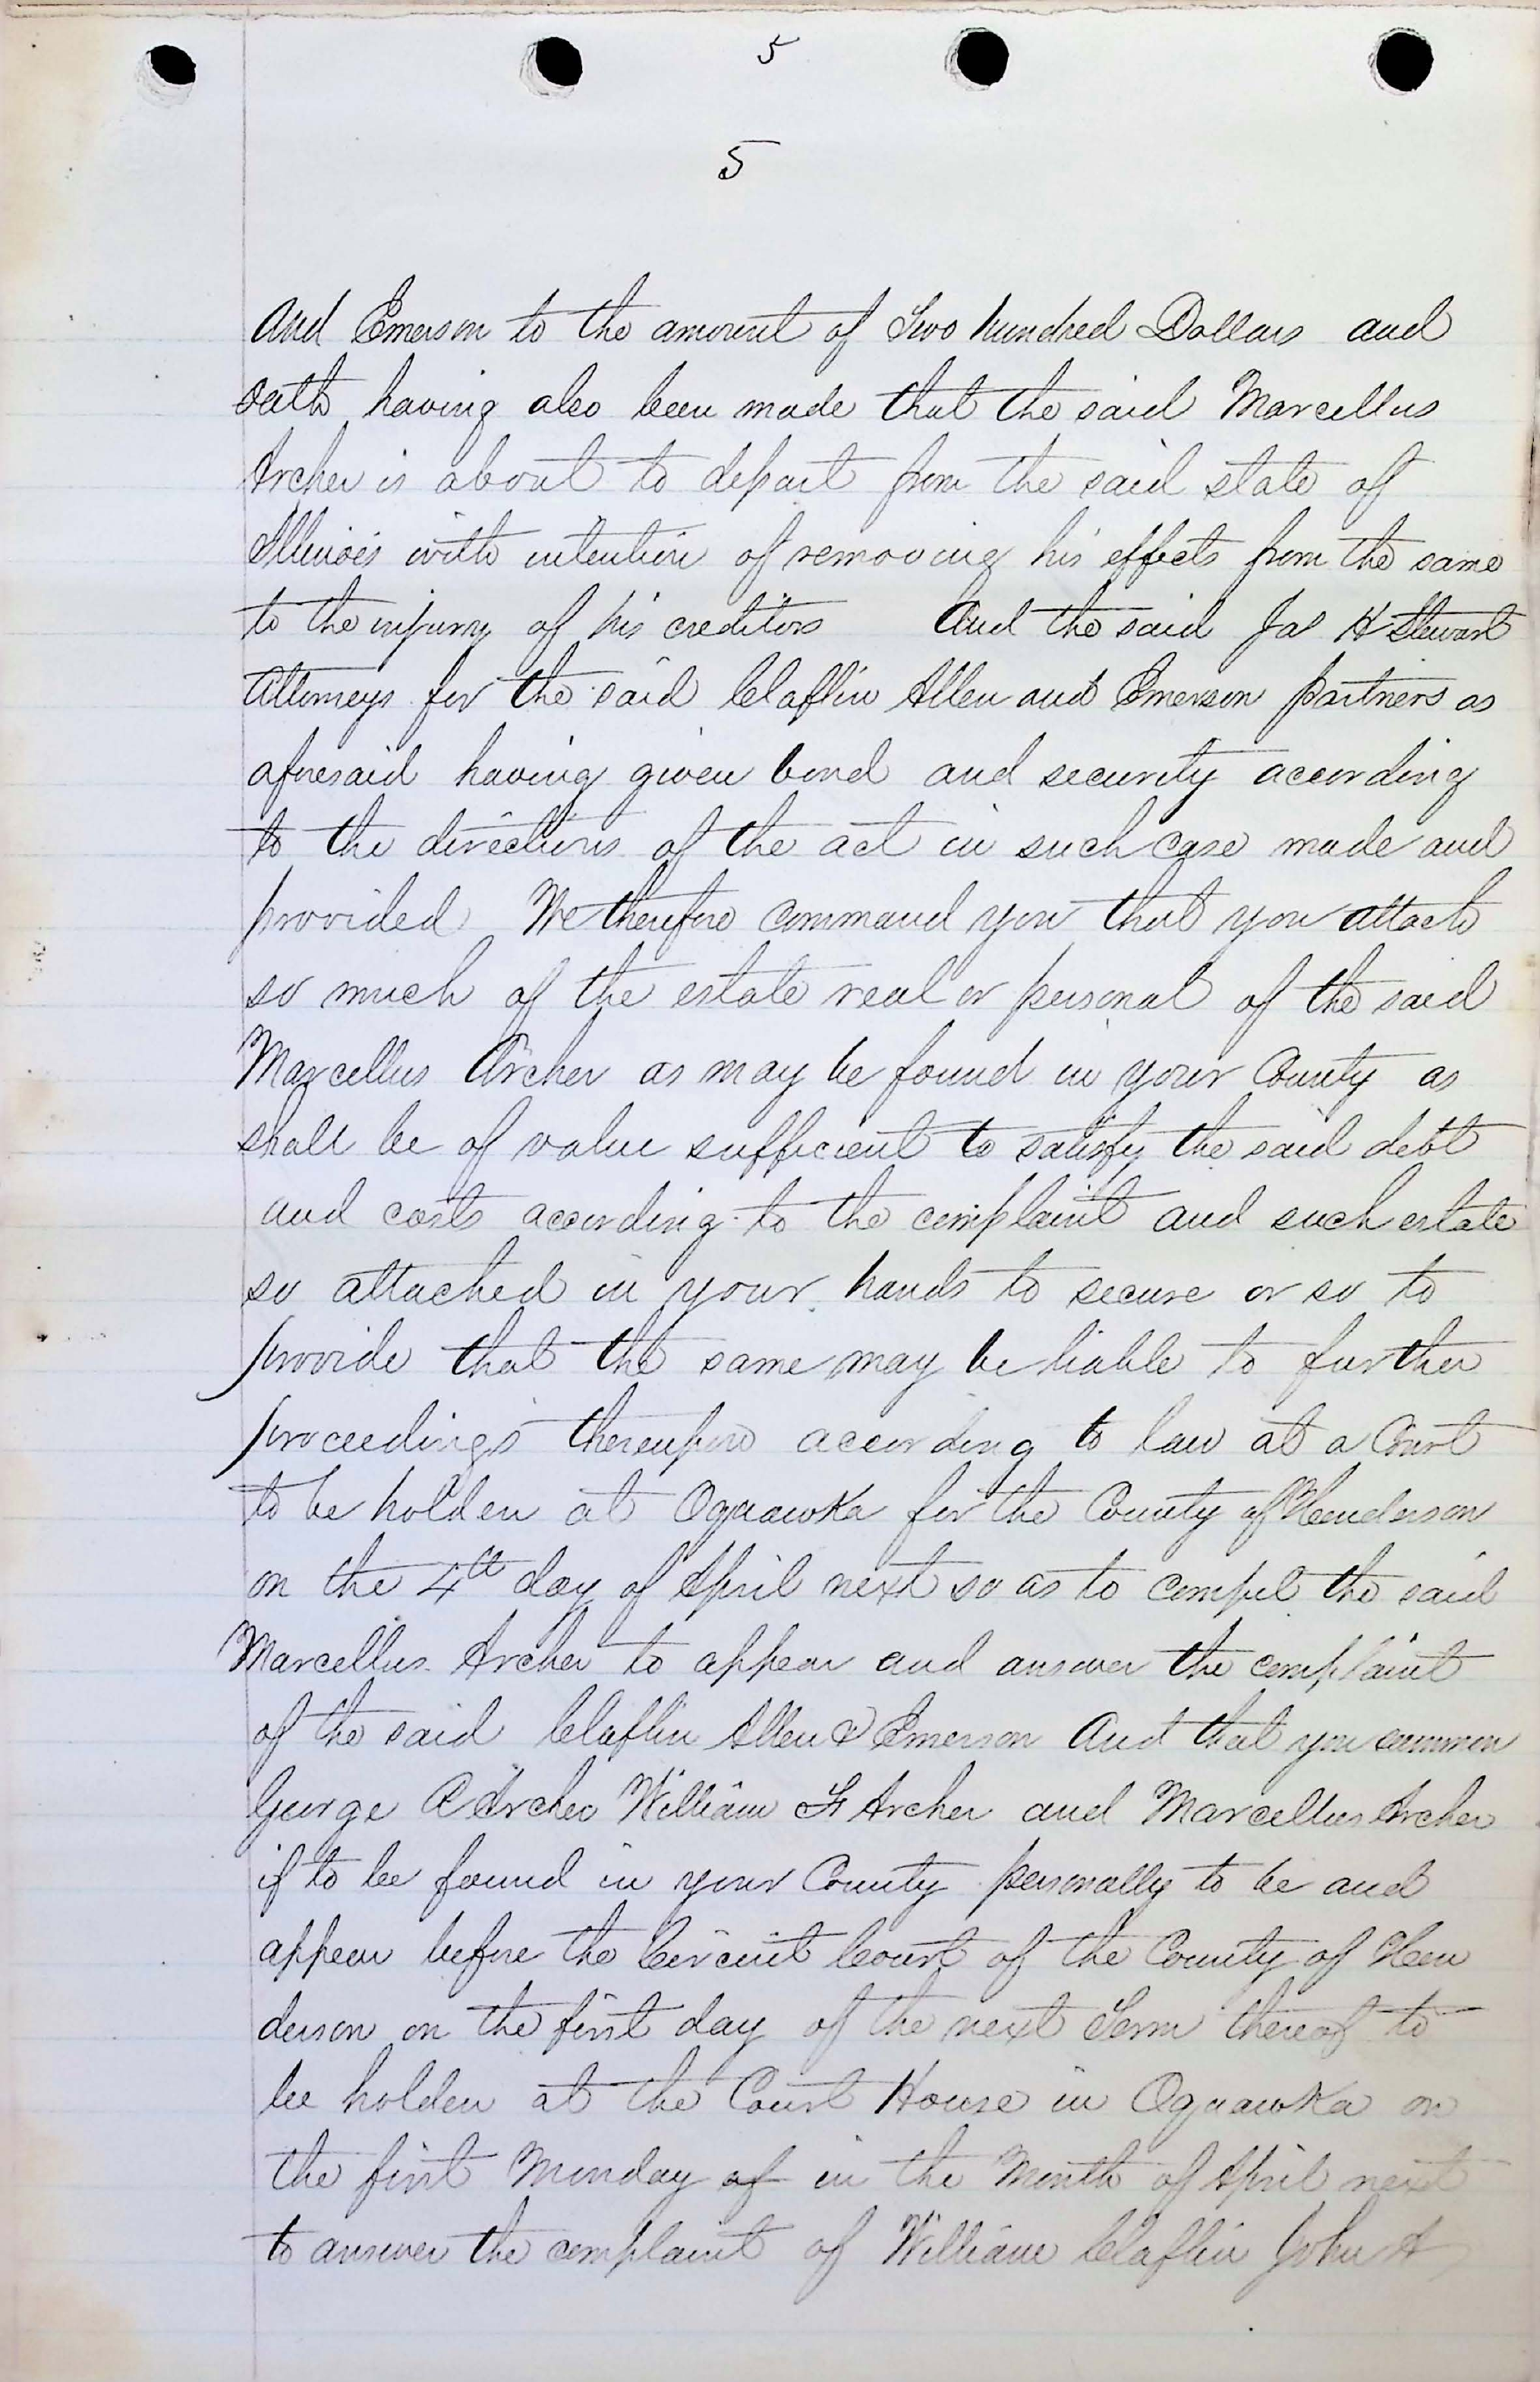 5
5
And Emerson to the amount of Two hundred Dollars and
Oath having also been made that the said Marcellus
Archer is about to depart from the said state of
Illinois with intention of removing his effects from the same
to the injury of his creditors And the said Jas H Stewart
Attorneys for the said Claflin Allen and Emerson partners as
aforesaid having given bond and security according
to the directions of the act in such case made and
provided We therefore command you that you attach
so much of the estate real or personal of the said
Marcellus Archer as may be found in your County as
shall be of value sufficient to satisfy the said debt
and costs according to the complaint and such estate
so attached in your hands to secure or so to
provide that the same may be liable to further
proceedings thereupon according to law at a Court
to be holden at Oquawka for the County of Henderson
on the 4th day of April next so as to compel the said
Marcellus Archer to appear and answer the complaint
of the said Claflin Allen & Emerson And that you summon
George C Archer William F Archer and Marcellus Archer
if to be found in your County personally to be and
appear before the Circuit Court of the County of Hen
derson on the first day of the next Term thereof to
be holden at the Court House in Oquawka on
the first Monday of in the Month of April next
to answer the complaint of William Claflin John A